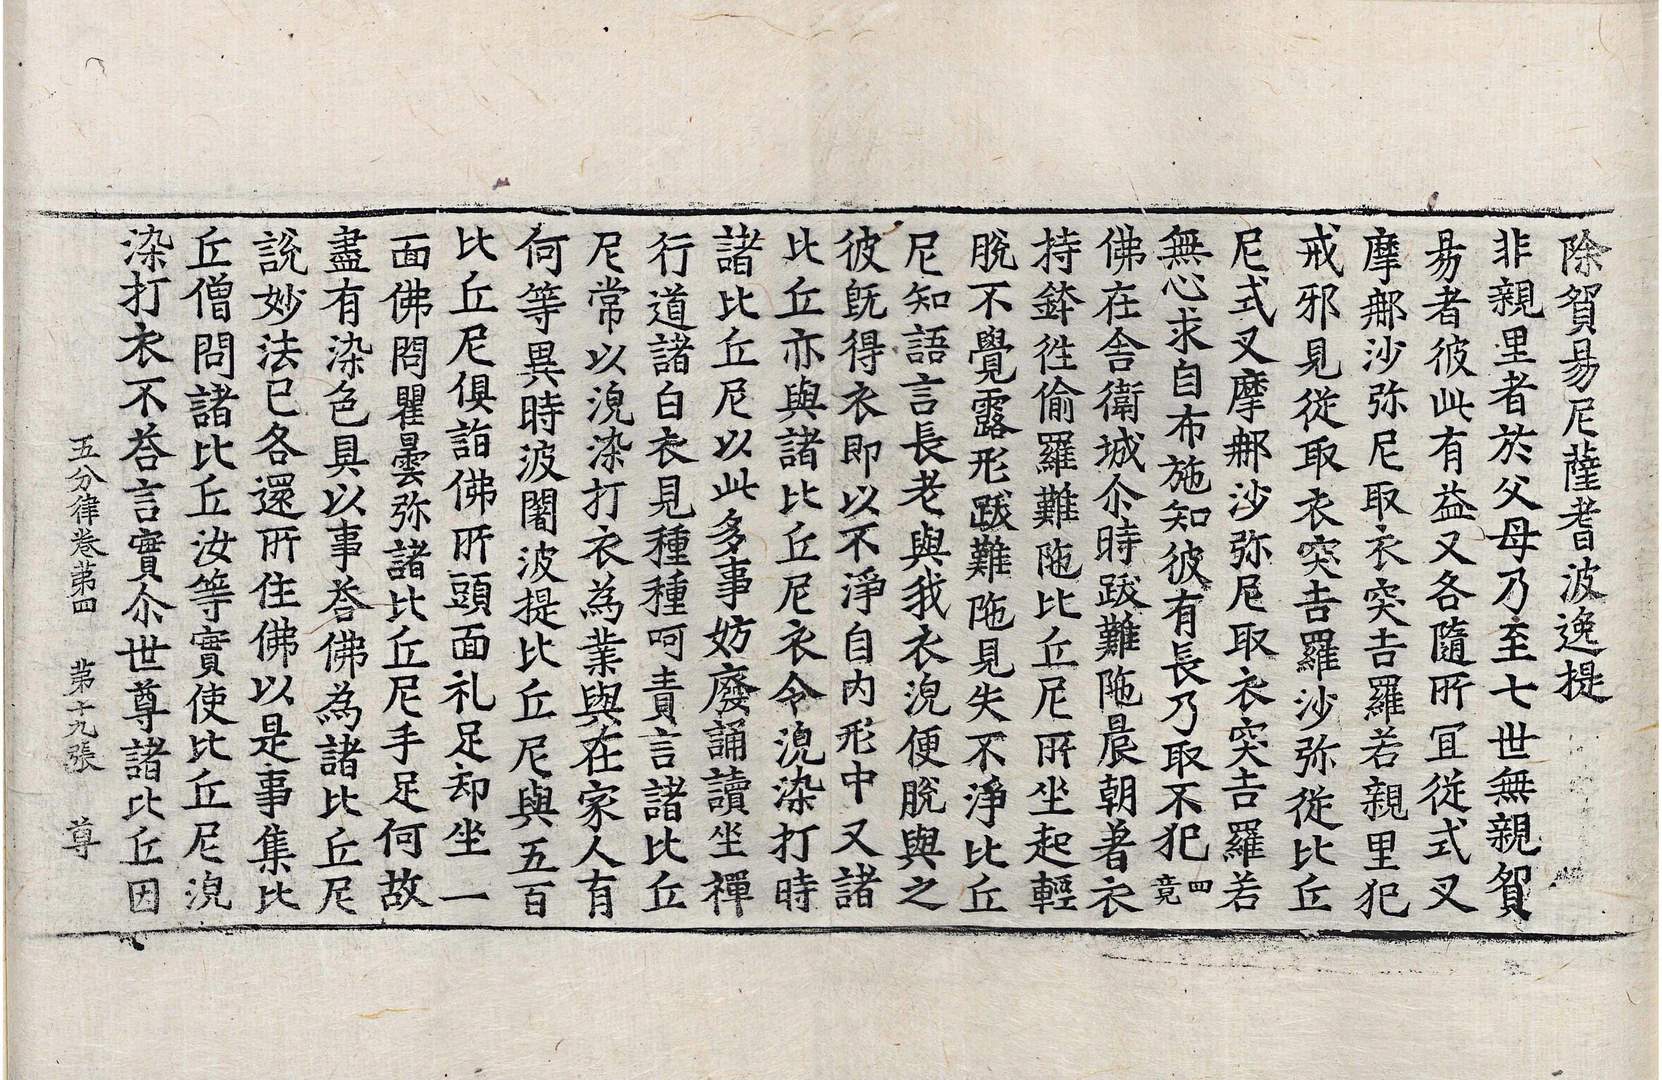 除貿昜尼薩耆波逸提
非親里者於父母乃至七世無親貿
昜者彼此有益又各隨所冝從式叉
摩㖠沙弥尼取衣突吉羅若親里犯
戒邪見從取衣突吉羅沙弥從比丘
尼式叉摩㖠沙弥尼取衣突吉羅若
無心求自布施知彼有長乃取不犯四竟
佛在舍衛城尒時跋難陁晨朝著衣
持鉢往偷羅難陁比丘尼所坐起輕
脫不覺露形跋難陁見失不淨比丘
尼知語言長老與我衣浣便脫與之
彼旣得衣即以不淨自內形中又諸
比丘亦與諸比丘尼衣令浣染打時
諸比丘尼以此多事妨廢誦讀坐禪
行道諸白衣見種種呵責言諸比丘
尼常以浣染打衣為業與在家人有
何等異時波闍波提比丘尼與五百
比丘尼俱詣佛所頭面礼足却坐一
面佛問瞿曇弥諸比丘尼手足何故
盡有染色具以事荅佛為諸比丘尼
說妙法已各還所住佛以是事集比
丘僧問諸比丘汝等實使比丘尼浣
染打衣不荅言實尒世尊諸比丘因
五分律卷苐四 苐十九張 尊